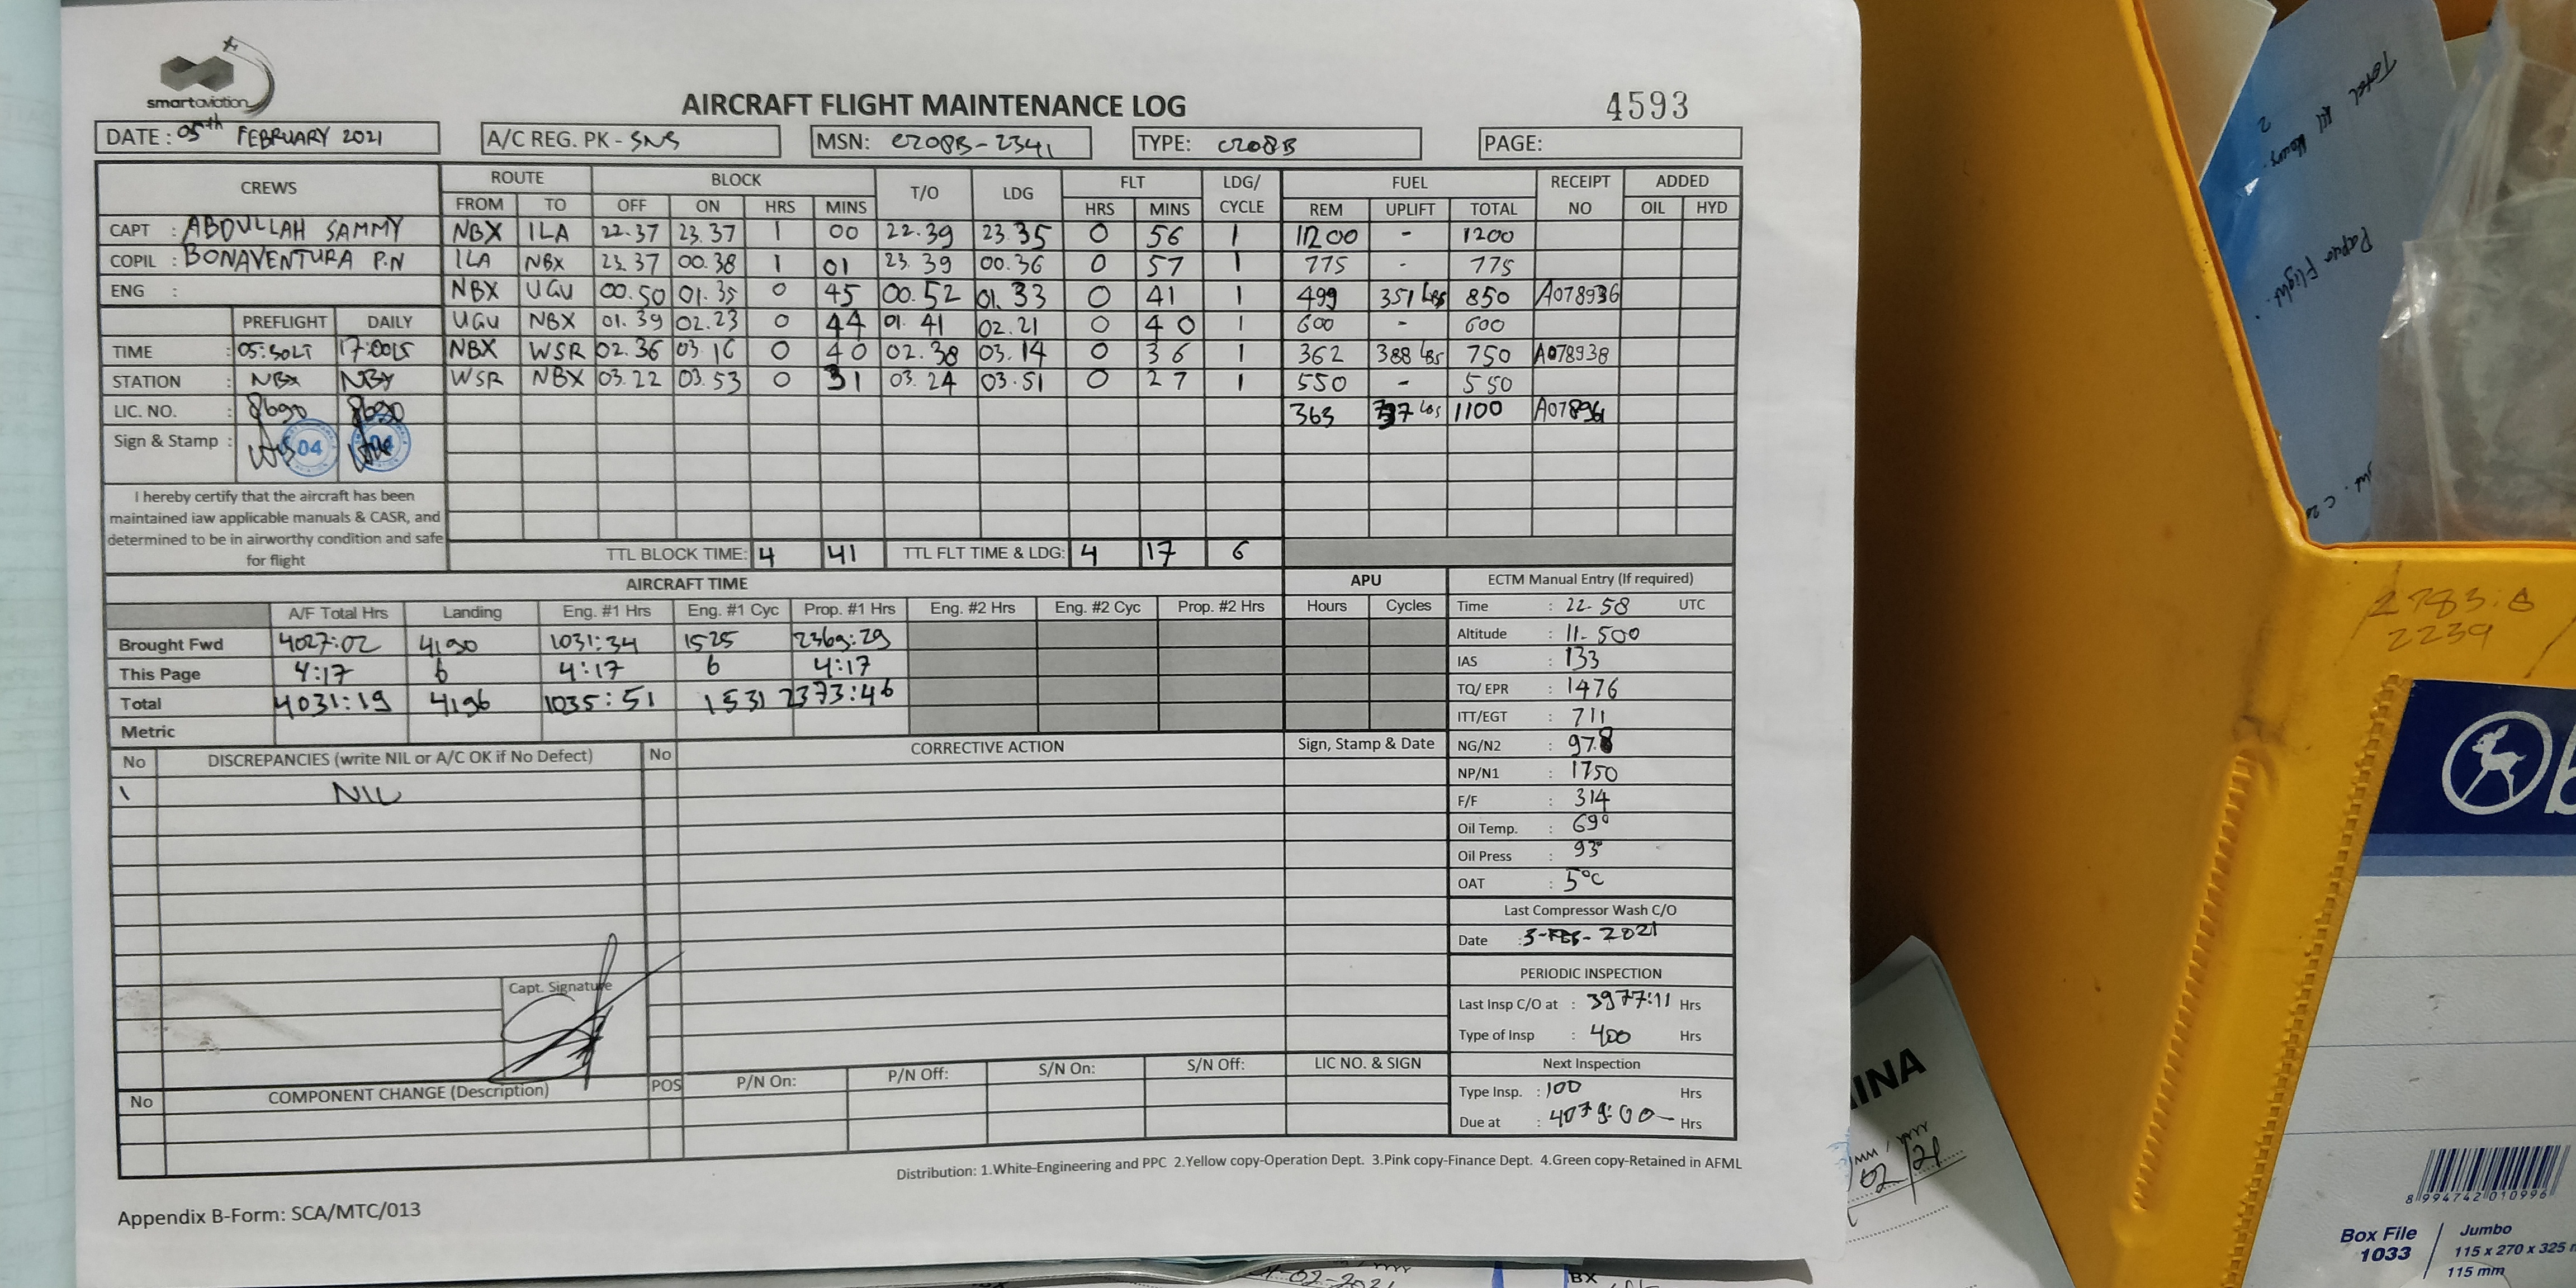 smartaviation
AIRCRAFT FLIGHT MAINTENANCE LOG
4593
DATE : 05th FEBRUARY 2021 A/C REG. PK - SNS MSN: C208B-2341 TYPE: C208B PAGE:
CREWS ROUTE BLOCK T/O LDG FLT LDG/ CYCLE FUEL RECEIPT NO ADDED
FROM TO OFF ON HRS MINS HRS MINS REM UPLIFT TOTAL OIL HYD
CAPT : ABDULLAH SAMMY NBX ILA 22.37 23.37 1 00 22.39 23.35 0 56 1 1200 - 1200
COPIL : BONAVENTURA P.N ILA NBX 23.37 00.38 1 01 23.39 00.36 0 57 1 775 - 775
ENG : NBX UGU 00.50 01.35 0 45 00.52 01.33 0 41 1 499 351 Lbs 850 A078936
PREFLIGHT DAILY UGU NBX 01.39 02.23 0 44 01.41 02.21 0 40 1 600 - 600
TIME : 05:30LT 17:00LT NBX WSR 02.36 03.16 0 40 02.38 03.14 0 36 1 362 388 Lbs 750 A078938
STATION : NBX NBX WSR NBX 03.22 03.53 0 31 03.24 03.51 0 27 1 550 - 550
LIC. NO. : 8690 8690 363 737 Lbs 1100
Sign & Stamp : 04 04
I hereby certify that the aircraft has been
maintained iaw applicable manuals & CASR, and
determined to be in airworthy condition and safe
for flight
TTL BLOCK TIME: 4 41 TTL FLT TIME & LDG: 4 17 6
AIRCRAFT TIME APU ECTM Manual Entry (If required)
A/F Total Hrs Landing Eng. #1 Hrs Eng. #1 Cyc Prop. #1 Hrs Eng. #2 Hrs Eng. #2 Cyc Prop. #2 Hrs Hours Cycles
Brought Fwd 4027:02 4190 1031:34 1525 2369:29
This Page 4:17 6 4:17 6 4:17
Total 4031:19 4196 1035:51 1531 2373:46
Metric
Time : 22.58 UTC
Altitude : 11.500
IAS : 133
TQ/ EPR : 1476
ITT/EGT : 711
NG/N2 : 97.8
NP/N1 : 1750
F/F : 314
Oil Temp. : 69°
Oil Press : 93°
OAT : 5°C
Last Compressor Wash C/O
Date : 3-FEB-2021
PERIODIC INSPECTION
Last Insp C/O at : 3977:11 Hrs
Type of Insp : 400 Hrs
Next Inspection
Type Insp. : 100 Hrs
Due at : 4079:00 Hrs
No DISCREPANCIES (write NIL or A/C OK if No Defect) No CORRECTIVE ACTION Sign, Stamp & Date
1 NIL
Capt. Signature
No COMPONENT CHANGE (Description) POS P/N On: P/N Off: S/N On: S/N Off: LIC NO. & SIGN
Distribution: 1.White-Engineering and PPC 2.Yellow copy-Operation Dept. 3.Pink copy-Finance Dept. 4.Green copy-Retained in AFML
Appendix B-Form: SCA/MTC/013
Papua Flight.
2783.8
2239
8 994742 010996
Box File
1033
Jumbo
115 x 270 x 325
115 mm